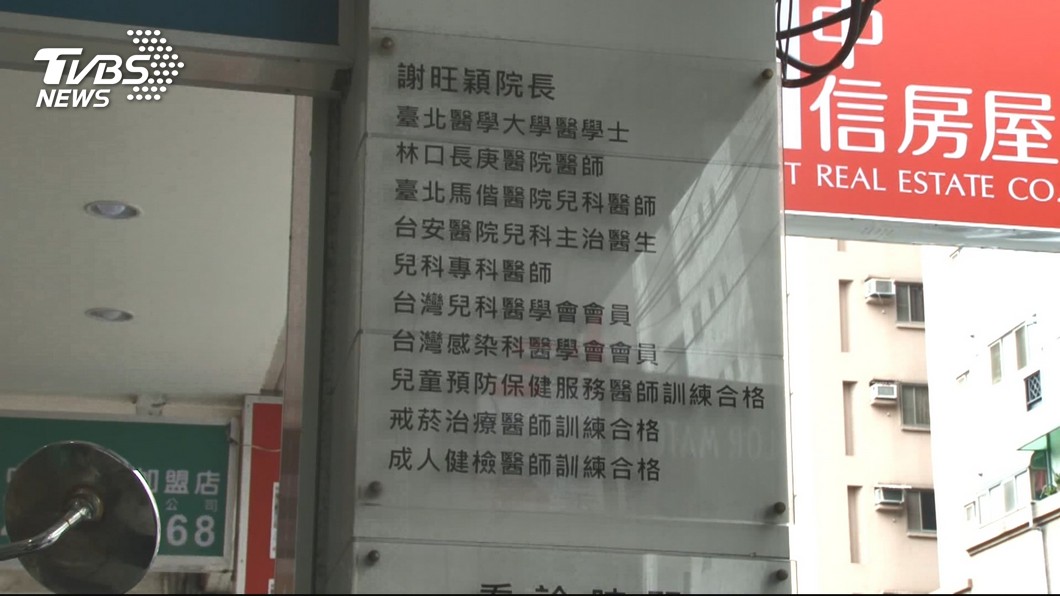 TVBS
NEWS
謝旺穎院長
臺北醫學大學醫學士
林口長庚醫院醫師
臺北馬偕醫院兒科醫師
台安醫院兒科主治醫生
兒科專科醫師
台灣兒科醫學會會員
台灣感染科醫學會會員
兒童預防保健服務醫師訓練合格
戒菸治療醫師訓練合格
成人健檢醫師訓練合格
中
信房屋
T REAL ESTATE CO.
加盟店
公司
68